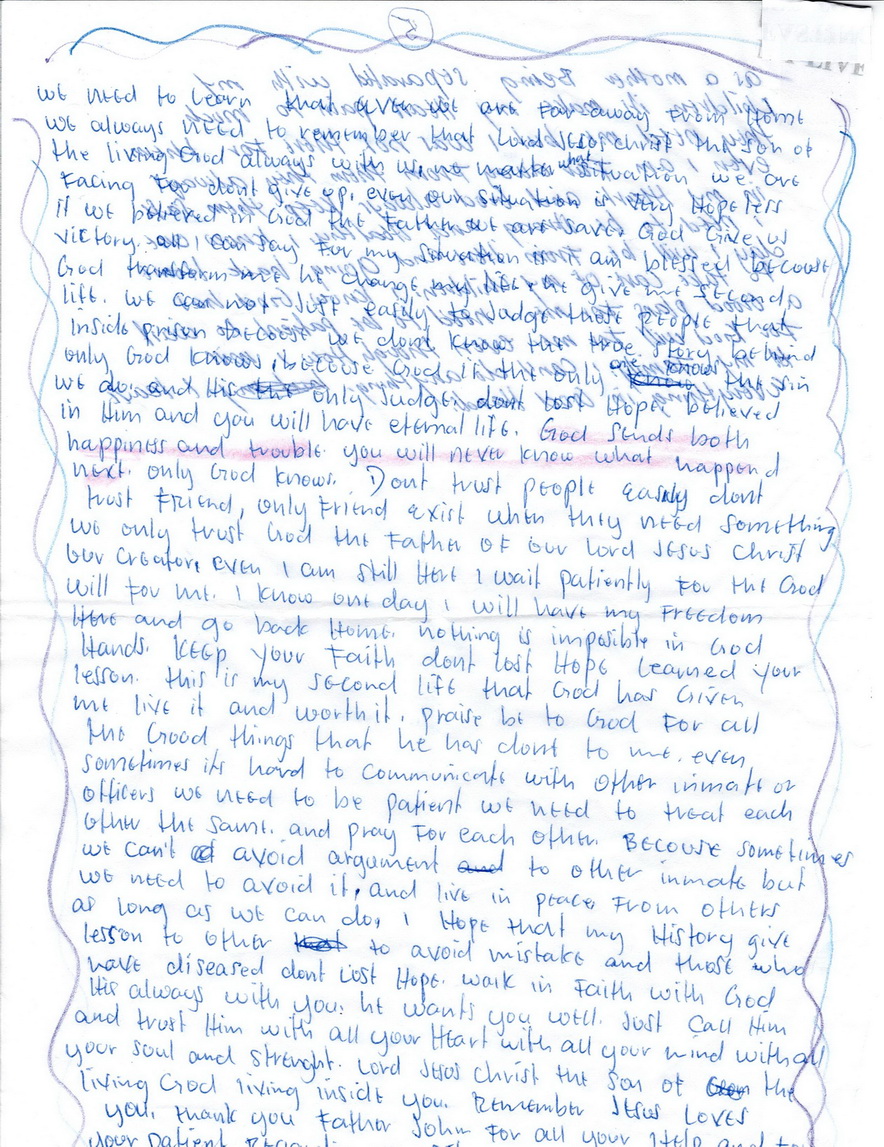 5
LIVE
we need to learn that even we are far away from Home
we always need to remember that Lord Jesus christ the son of
the living God always with us, no matter what situation we are
Facing dont give up, even our situation is very Hopeless
if we believed in God the Father we are saved God Give us
victory. I can say For my situation I am blessed because
God transform me he change my life he give me second
life. we can not easily to Judge those people that
inside prison because we dont know the true story behind
only God knows, because God is the only one knows the sin
we do, and His only Judge. dont lost Hope, believed
in Him and you will have eternal life. God sends both
happiness and trouble. you will never know what happend
next. only God knows. Dont trust people easily dont
trust Friend, only Friend exist when they need something
we only trust God the Father of our Lord Jesus Christ
our Creator, even I am still Here I wait patiently For the God
will For me. I know one day I will have my Freedom
Here and go back Home. nothing is imposible in God
Hands. Keep your Faith dont lost Hope Learned your
lesson. this is my second life that God has Given
me live it and worth it. praise be to God For all
the Good things that he has done to me. even
sometimes its hard to communicate with other inmate or
officers we need to be patient we need to treat each
other the same. and pray For each other. Because sometimes
we can't avoid argument to other inmate but
we need to avoid it, and live in peace From others
as long as we can do, I Hope that my History give
lesson to other to avoid mistake and those who
have diseased dont Lost Hope. walk in Faith with God
His always with you. he wants you well. Just Call Him
and trust Him with all your Heart with all your mind with all
your soul and strenght. Lord Jesus christ the son of the
living God living inside you. Remember Jesus Loves
you. thank you Father John For all your Help and
your patient